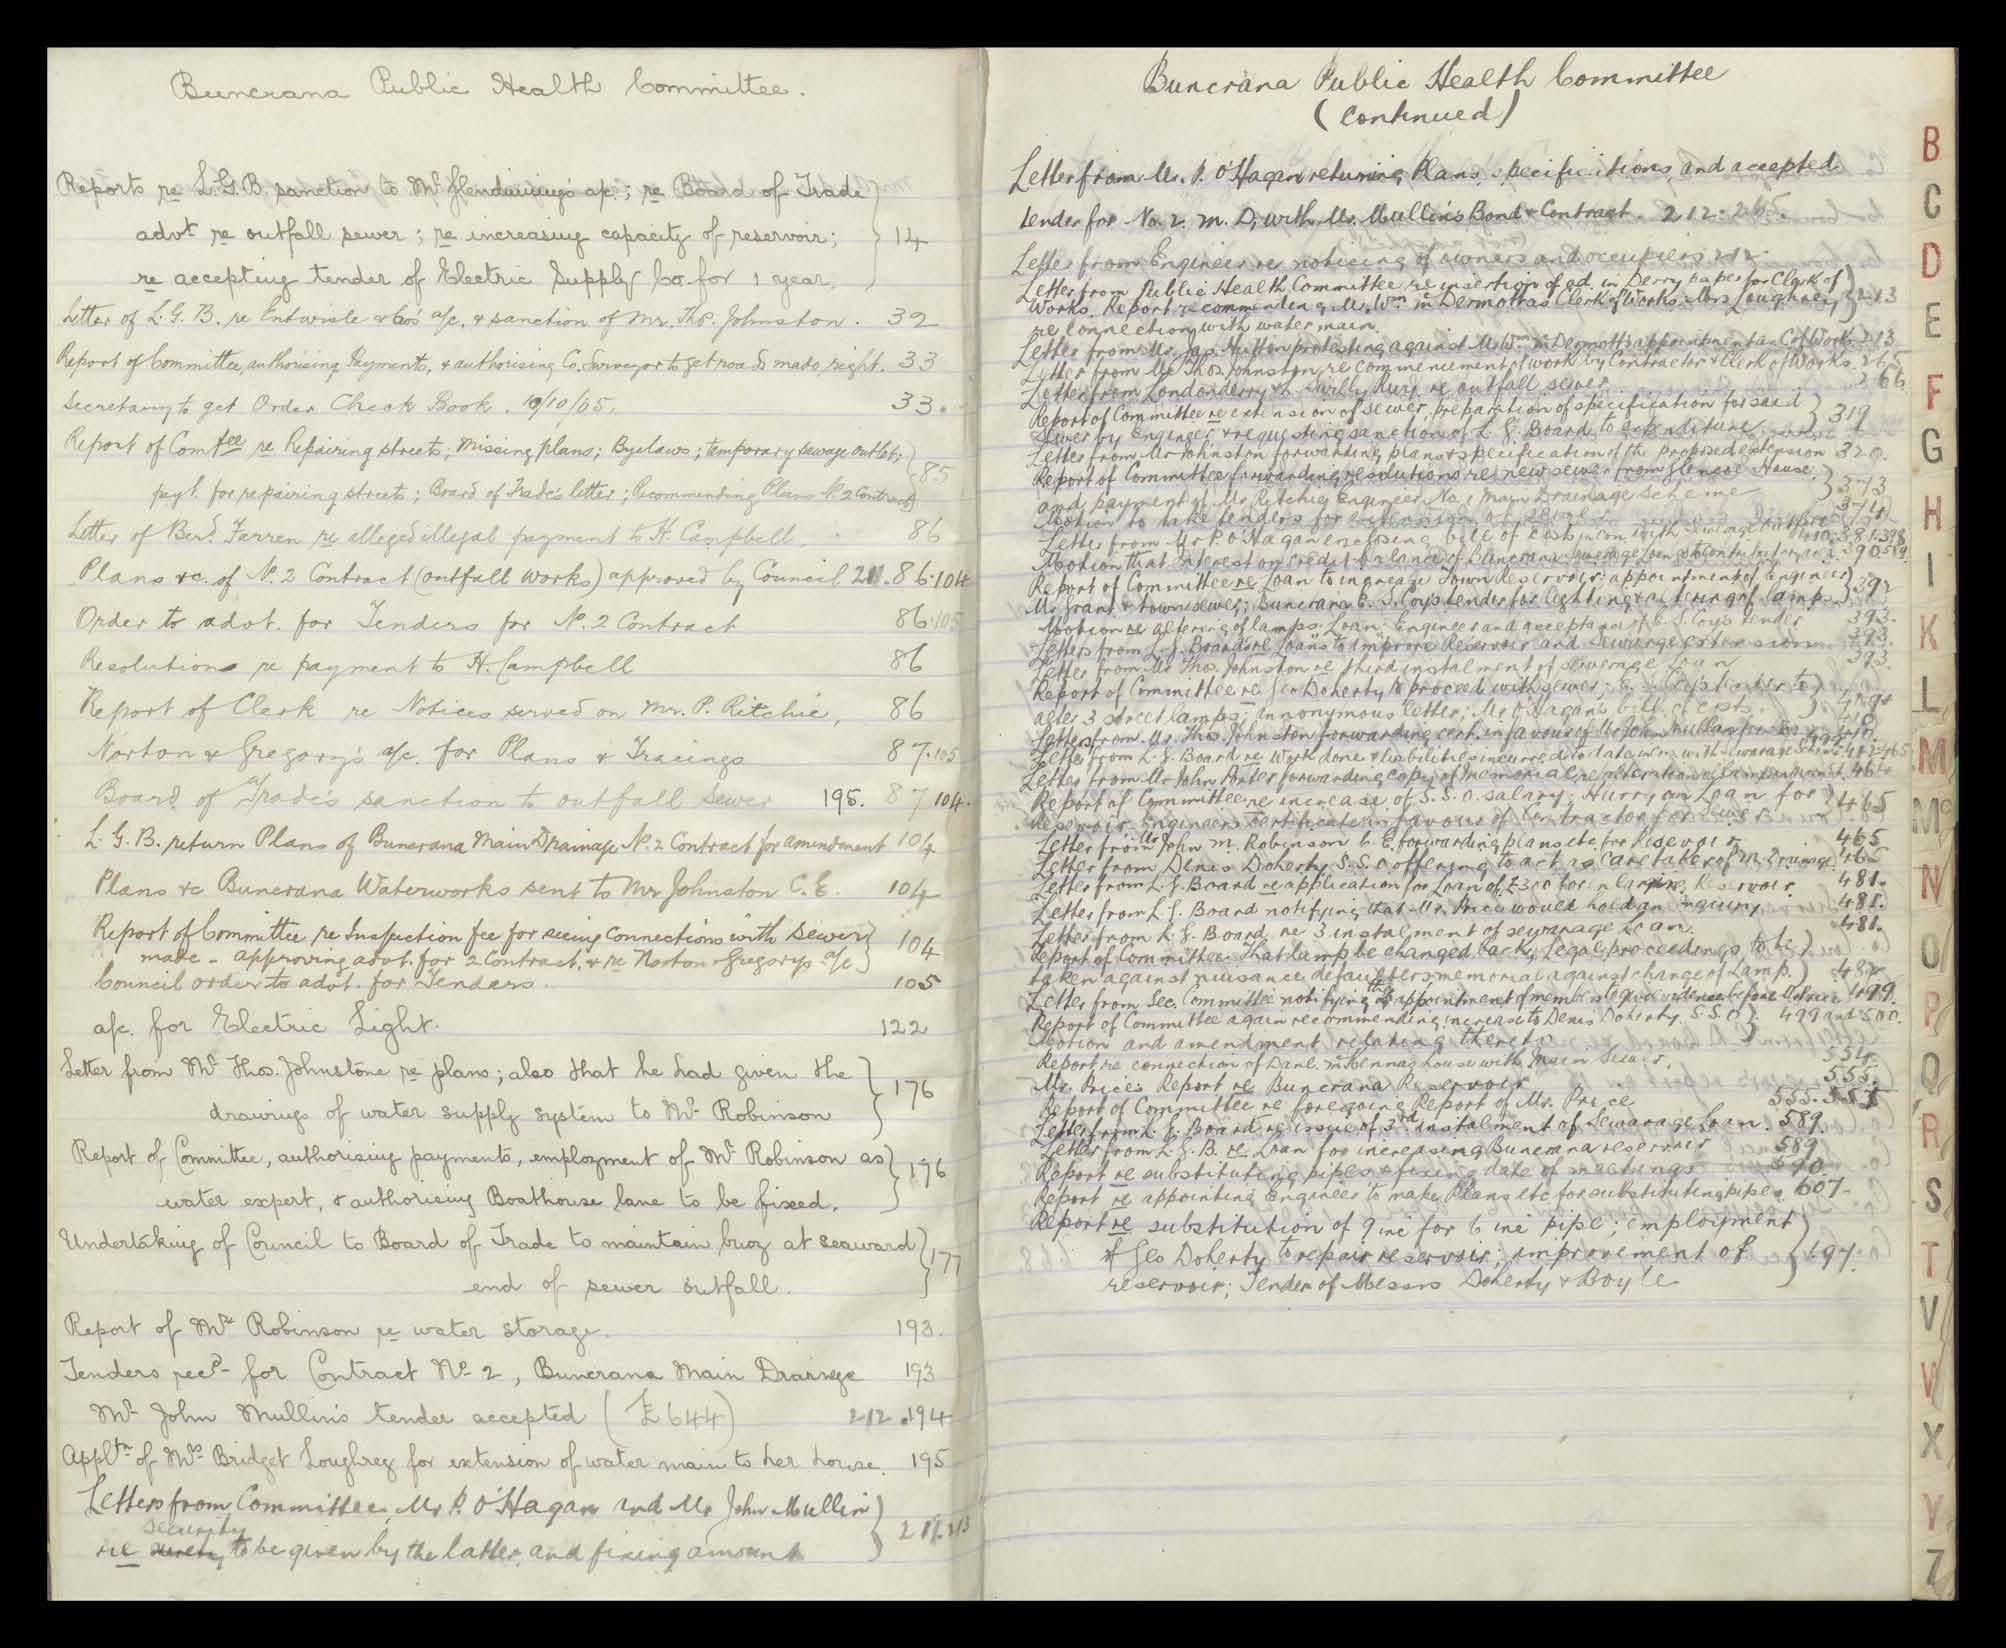 Buncrana Public Health Committee.
Reports re L.G.B. sanction to Mr Glendinning's a/c; re Board of Trade
advt re outfall sewer; re increasing capacity of reservoir; 14
re accepting tender of Electric Supply Co. for 1 year.
Letter of L.G.B. re Entwisle & Co's a/c, & sanction of Mr. Thos. Johnston. 32
Report of Committee, authorising Payments, & authorising Co. Surveyor to get roads made right. 33
Secretary to get Order Check Book. 10/10/05. 33.
Report of Comtee re Repairing streets; Missing plans; Byelaws; temporary sewage outlet; 85
payt. for repairing streets; Board of Trade's letter; Recommending Plans No. 2 Contract
Letter of Berd. Farren re alleged illegal payment to H. Campbell. 86
Plans &c. of No. 2 Contract (outfall works) approved by Council 211. 86.104
Order to advt. for Tenders for No. 2 Contract 86.105
Resolutions re payment to H. Campbell 86
Report of Clerk re Notices served on Mr. P. Ritchie, 86
Norton & Gregory's a/c. for Plans & Tracings 87.105
Board of Trade's sanction to outfall sewer 195. 87 104.
L.G.B. return Plans of Buncrana Main Drainage No. 2 Contract for amendment 104
Plans &c Buncrana Waterworks sent to Mr Johnston C.E. 104
Report of Committee re Inspection fee for seeing connections with sewer 104
made - approving advt. for 2 Contract, & re Norton & Gregory's a/c
Council order to advt. for Tenders. 105
a/c. for Electric Light. 122
Letter from Mr Thos. Johnstone re plans; also that he had given the 176
drawings of water supply system to Mr Robinson
Report of Committee, authorising payments, employment of Mr Robinson as 176
water expert, & authorising Boathouse lane to be fixed.
Undertaking of Council to Board of Trade to maintain buoy at seaward 177
end of sewer outfall.
Report of Mr Robinson re water storage. 193.
Tenders recd for Contract No 2, Buncrana Main Drainage 193
Mr John Mullin's tender accepted (£644) 212.194
Appltn of Mrs Bridget Loughrey for extension of water main to her house. 195
Letters from Committee, Mr P. O'Hagan and Mr John Mullin 213
security
re to be given by the latter, and fixing amount
Buncrana Public Health Committee
(continued)
Letter from Mr. P. O'Hagan returning Plans, specifications, and accepted
tender for No. 2. M. D, with Mr. Mullin's Bond & Contract. 212.265.
Letter from Engineer re noticing of owners and occupiers 212.
Letter from Public Health Committee re insertion of ad. in Derry paper for Clerk of
Works. Report recommending Mr. Wm McDermott as Clerk of Works. Mrs Loughrey 213
re connection with water main.
Letter from Mr. Jas. Hutton protesting against Mr Wm McDermott's appointment as C. of Works 213
Letter from Mr Thos. Johnston re commencement of work by Contractor & Clerk of Works. 265
Letter from Londonderry & L. Swilly Rwy. re outfall sewer. 266
Report of Committee re extension of sewer, preparation of specification for said 319
sewer by Engineer & requesting sanction of L. G. Board to expenditure
Letter from Mr Johnston forwarding plans & specification of the proposed extension 320.
Report of Committee forwarding resolutions re new sewer from Glencoe House, 373
and payment of Mr Ritchie, Engineer No. 1 Main Drainage Scheme
Motion to take tenders for extension of sewer 374
Letter from Mr P. O'Hagan enclosing bill of costs in con. with sewerage 381.398
Motion that interest on credit balance of Buncrana sewerage loan 390.589
Report of Committee re Loan to increase Town Reservoir; appointment of Engineer 392
Mr Grant & town sewer; Buncrana E. S. Coy's tender for lighting & altering of lamps
Motion re altering of lamps. Loan, Engineer and acceptance of E. S. Coy's tender 393.
Letters from L. G. Board re Loans to improve Reservoir and sewerage extension 393.
Letter from Mr Thos. Johnston re third instalment of sewerage loan 393.
Report of Committee re Geo Doherty to proceed with sewer; E. S. Coy's tender to
alter 3 street lamps; annonymous letter; Mr O'Hagan's bill of costs.
Letters from Mr. Thos. Johnston forwarding cert. in favour of Mr John Mullan
Letter from L. G. Board re Work done & liabilities incurred to date in con. with Sewerage Scheme
Letter from Mr John Porter forwarding copy of memorial re alteration of lamp
Report of Committee re increase of S.S.O. salary; Hurry on Loan for 465
Reservoir. Engineer's certificate in favour of Contractor for Sewer
Letter from Mr John M. Robinson C. E. forwarding plans etc. for Reservoir 465
Letter from Denis Doherty S.S.O. offering to act as Caretaker of M. Drainage 465
Letter from L. G. Board re application for Loan of £300 for enlarging Reservoir. 481.
Letter from L. G. Board notifying that Mr. Price would hold an inquiry 481.
Letter from L. G. Board re 3 instalment of sewerage Loan. 481.
Report of Committee. That lamp be changed back; Legal proceedings to be
taken against nuisance defaulters; memorial against change of Lamp. 482
Letter from Sec. Committee notifying the appointment of members to give evidence before Mr Price 499.
Report of Committee again recommending increase to Denis Doherty S.S.O. 499 and 500.
Motion and amendment relating thereto
Report re connection of Danl. McKenna's house with Main Sewer. 554.
Mr. Price's Report re Buncrana Reservoir 555.
Report of Committee re foregoing Report of Mr. Price 555.557
Letter from L. G. Board re issue of 3rd instalment of Sewarage Loan. 589.
Letter from L. G. B. re Loan for increasing Buncrana reservoir 589
Report re substituting pipes & fixing date of meetings 590
Report re appointing Engineer to make Plans etc for substituting pipes 607.
Report re substitution of 9 inc for 6 inc pipe; employment
of Geo Doherty to repair reservoir; improvement of 697.
reservoir; Tender of Messrs Doherty & Boyle
B
C
D
E
F
G
H
I
K
L
M
Mc
N
O
P
Q
R
S
T
V
W
X
Y
Z